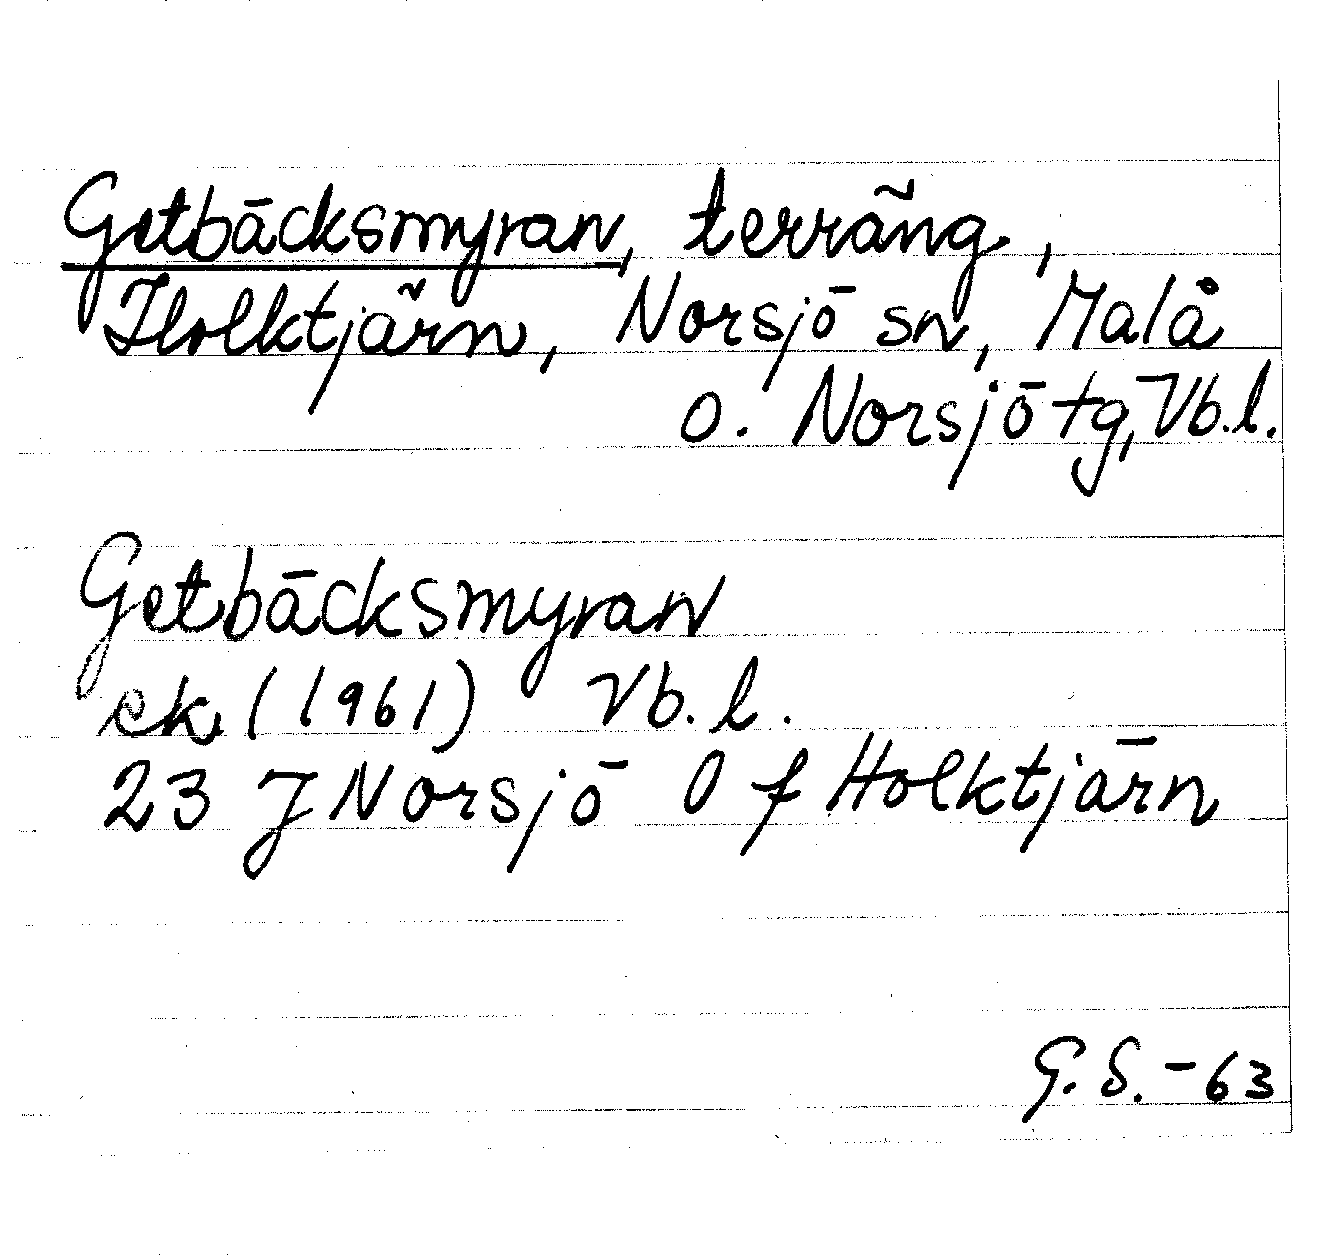 Getbäcksmyran, terräng,
Holktjärn, Norsjö sn, Malå
o. Norsjö tg, Vb.l.
Getbäcksmyran
ek (1961) Vb. l.
23 J Norsjö O f Holktjärn
G. S. - 63